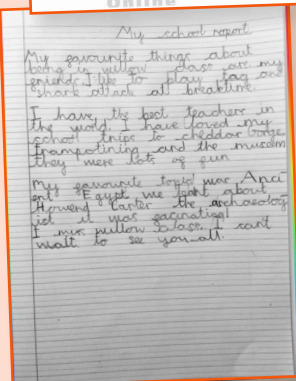 Online
My school report
My favourite things about
being in willow class are my
friends. I like to play tag and
shark attack at breaktime.
I have the best teachers in
the world. I have loved my
school trips to cheddar Gorge,
Trampolining and the museum
they were lots of fun
My favourite topic was Anci-
ent Egypt we leant about
Howerd Carter the archaeolog
ist it was facinating!
I miss willow class. I can't
wait to see you all.